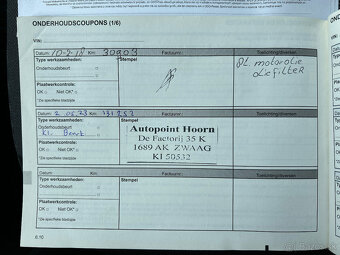 ONDERHOUDSCOUPONS (1/6)
VIN:
Datum: 10-9-18 Km: 30903 Factuurnr.: Toelichting/diversen
Type werkzaamheden: Stempel
Onderhoudsbeurt
Plaatwerkcontrole:
OK Niet OK*
*Zie specifieke bladzijde
motorolie
oliefilter
Datum: Km: 131253 Factuurnr.: Toelichting/diversen
Type werkzaamheden: Stempel
Onderhoudsbeurt
Plaatwerkcontrole:
OK Niet OK*
*Zie specifieke bladzijde
Autopoint Hoorn
De Factorij 35 K
1689 AK ZWAAG
KI 50532
Datum: Km: Factuurnr.: Toelichting/diversen
Type werkzaamheden: Stempel
Onderhoudsbeurt
Plaatwerkcontrole:
OK Niet OK*
*Zie specifieke bladzijde
6.10